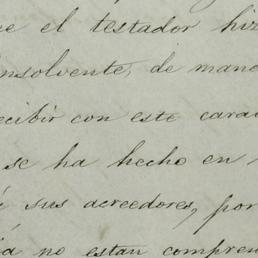 el testador hiz
insolvente, de mane
ecibir con este cara
se ha hecho en
sus acreedores, por
no estan compren